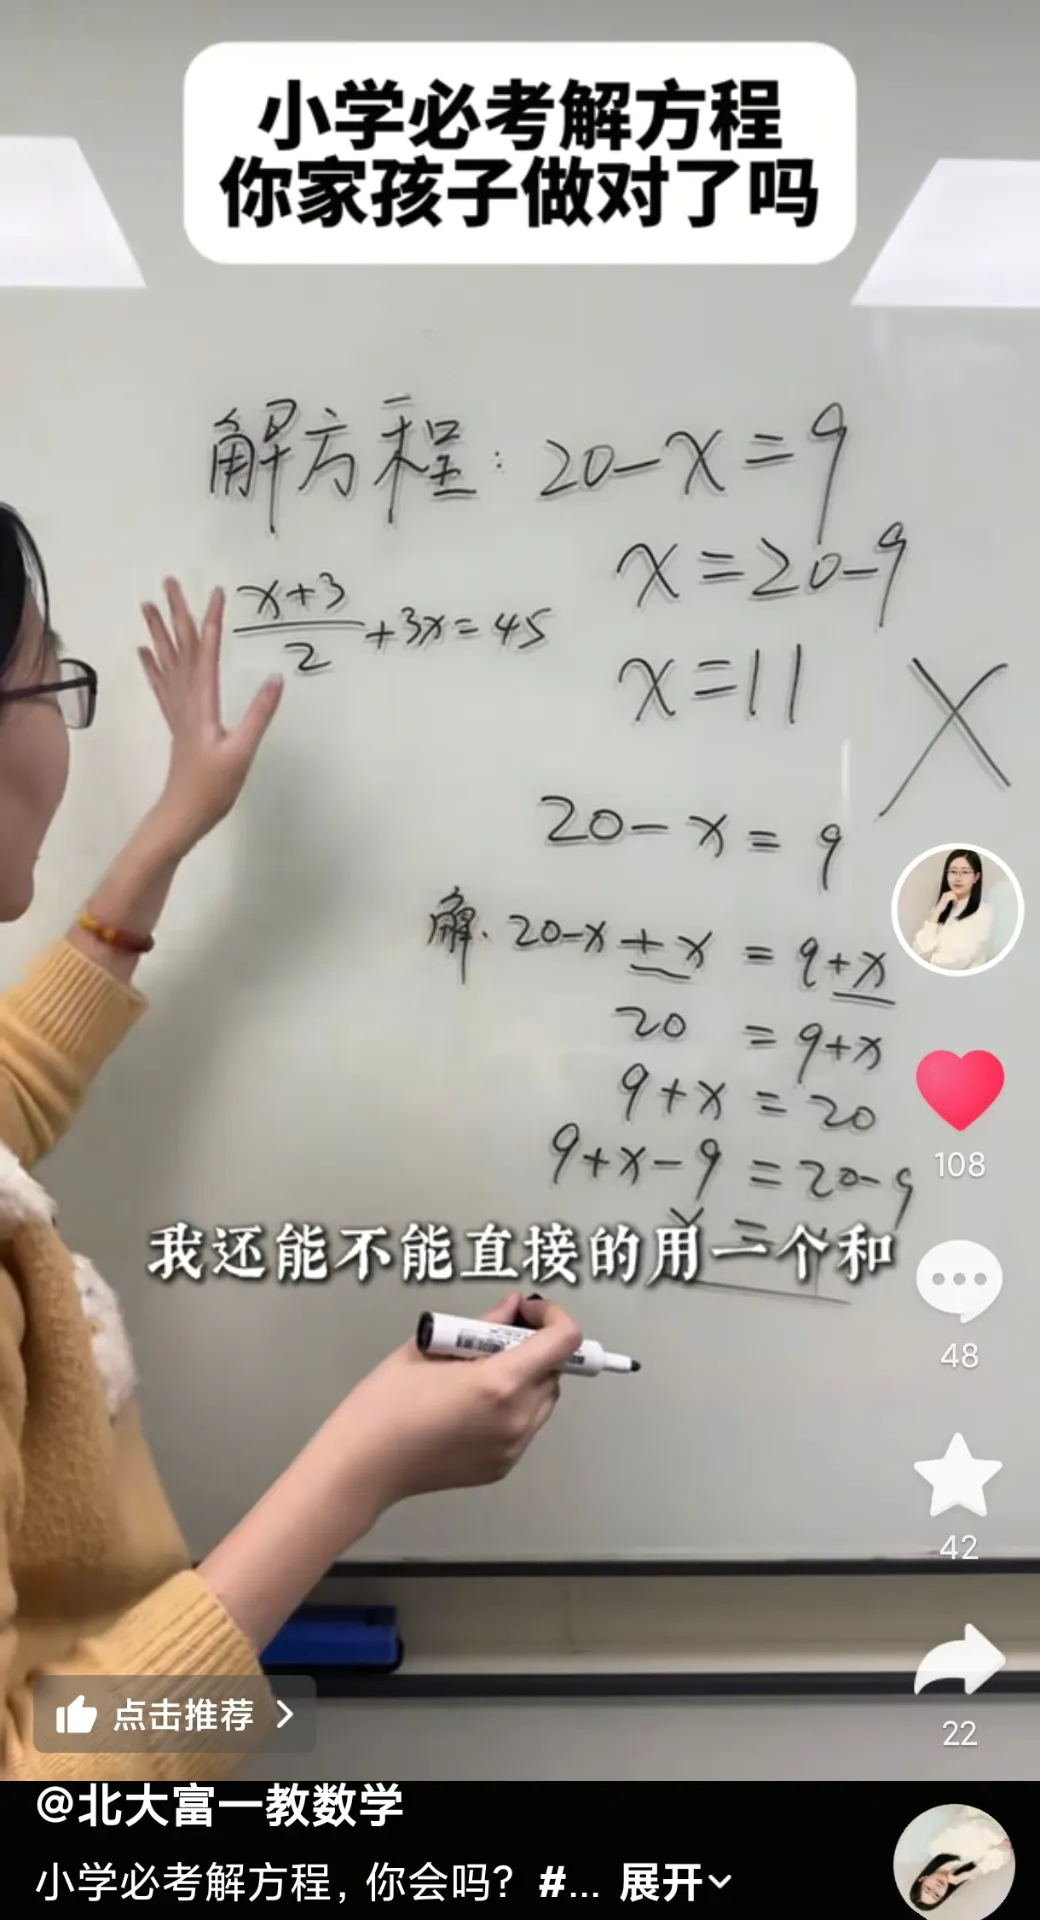 小学必考解方程
你家孩子做对了吗
解方程: 20-x=9
x=20-9
x+3
2
+3x=45
x=11
20-x=9
解. 20-x+x=9+x
20=9+x
9+x=20
108
9+x-9=20-9
我还能不能直接的用一个和
48
42
点击推荐
22
@北大富一教数学
小学必考解方程，你会吗？#... 展开